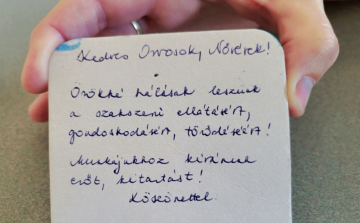 Kedves Orvosok, Nővérek!
Örökké hálásak leszünk
a szakszerű ellátásért,
gondoskodásért, törődésért!
Munkájukhoz kívánunk
erőt, kitartást!
Köszönettel